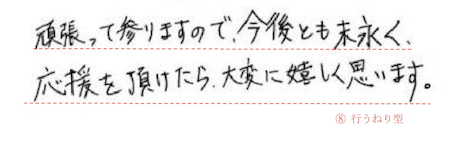 頑張って参りますので、今後とも末永く、
応援を頂けたら、大変に嬉しく思います。
⑧ 行うねり型